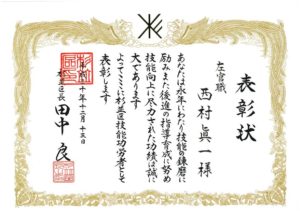 表彰状
左官職
西村眞一様
あなたは永年にわたり技能の錬磨に
励みまた後進の指導育成に努め
技能向上に尽力された功績は誠に
大であります
よってここに杉並区技能功労者として
表彰します
十年十一月十三日
杉並区長 田中良